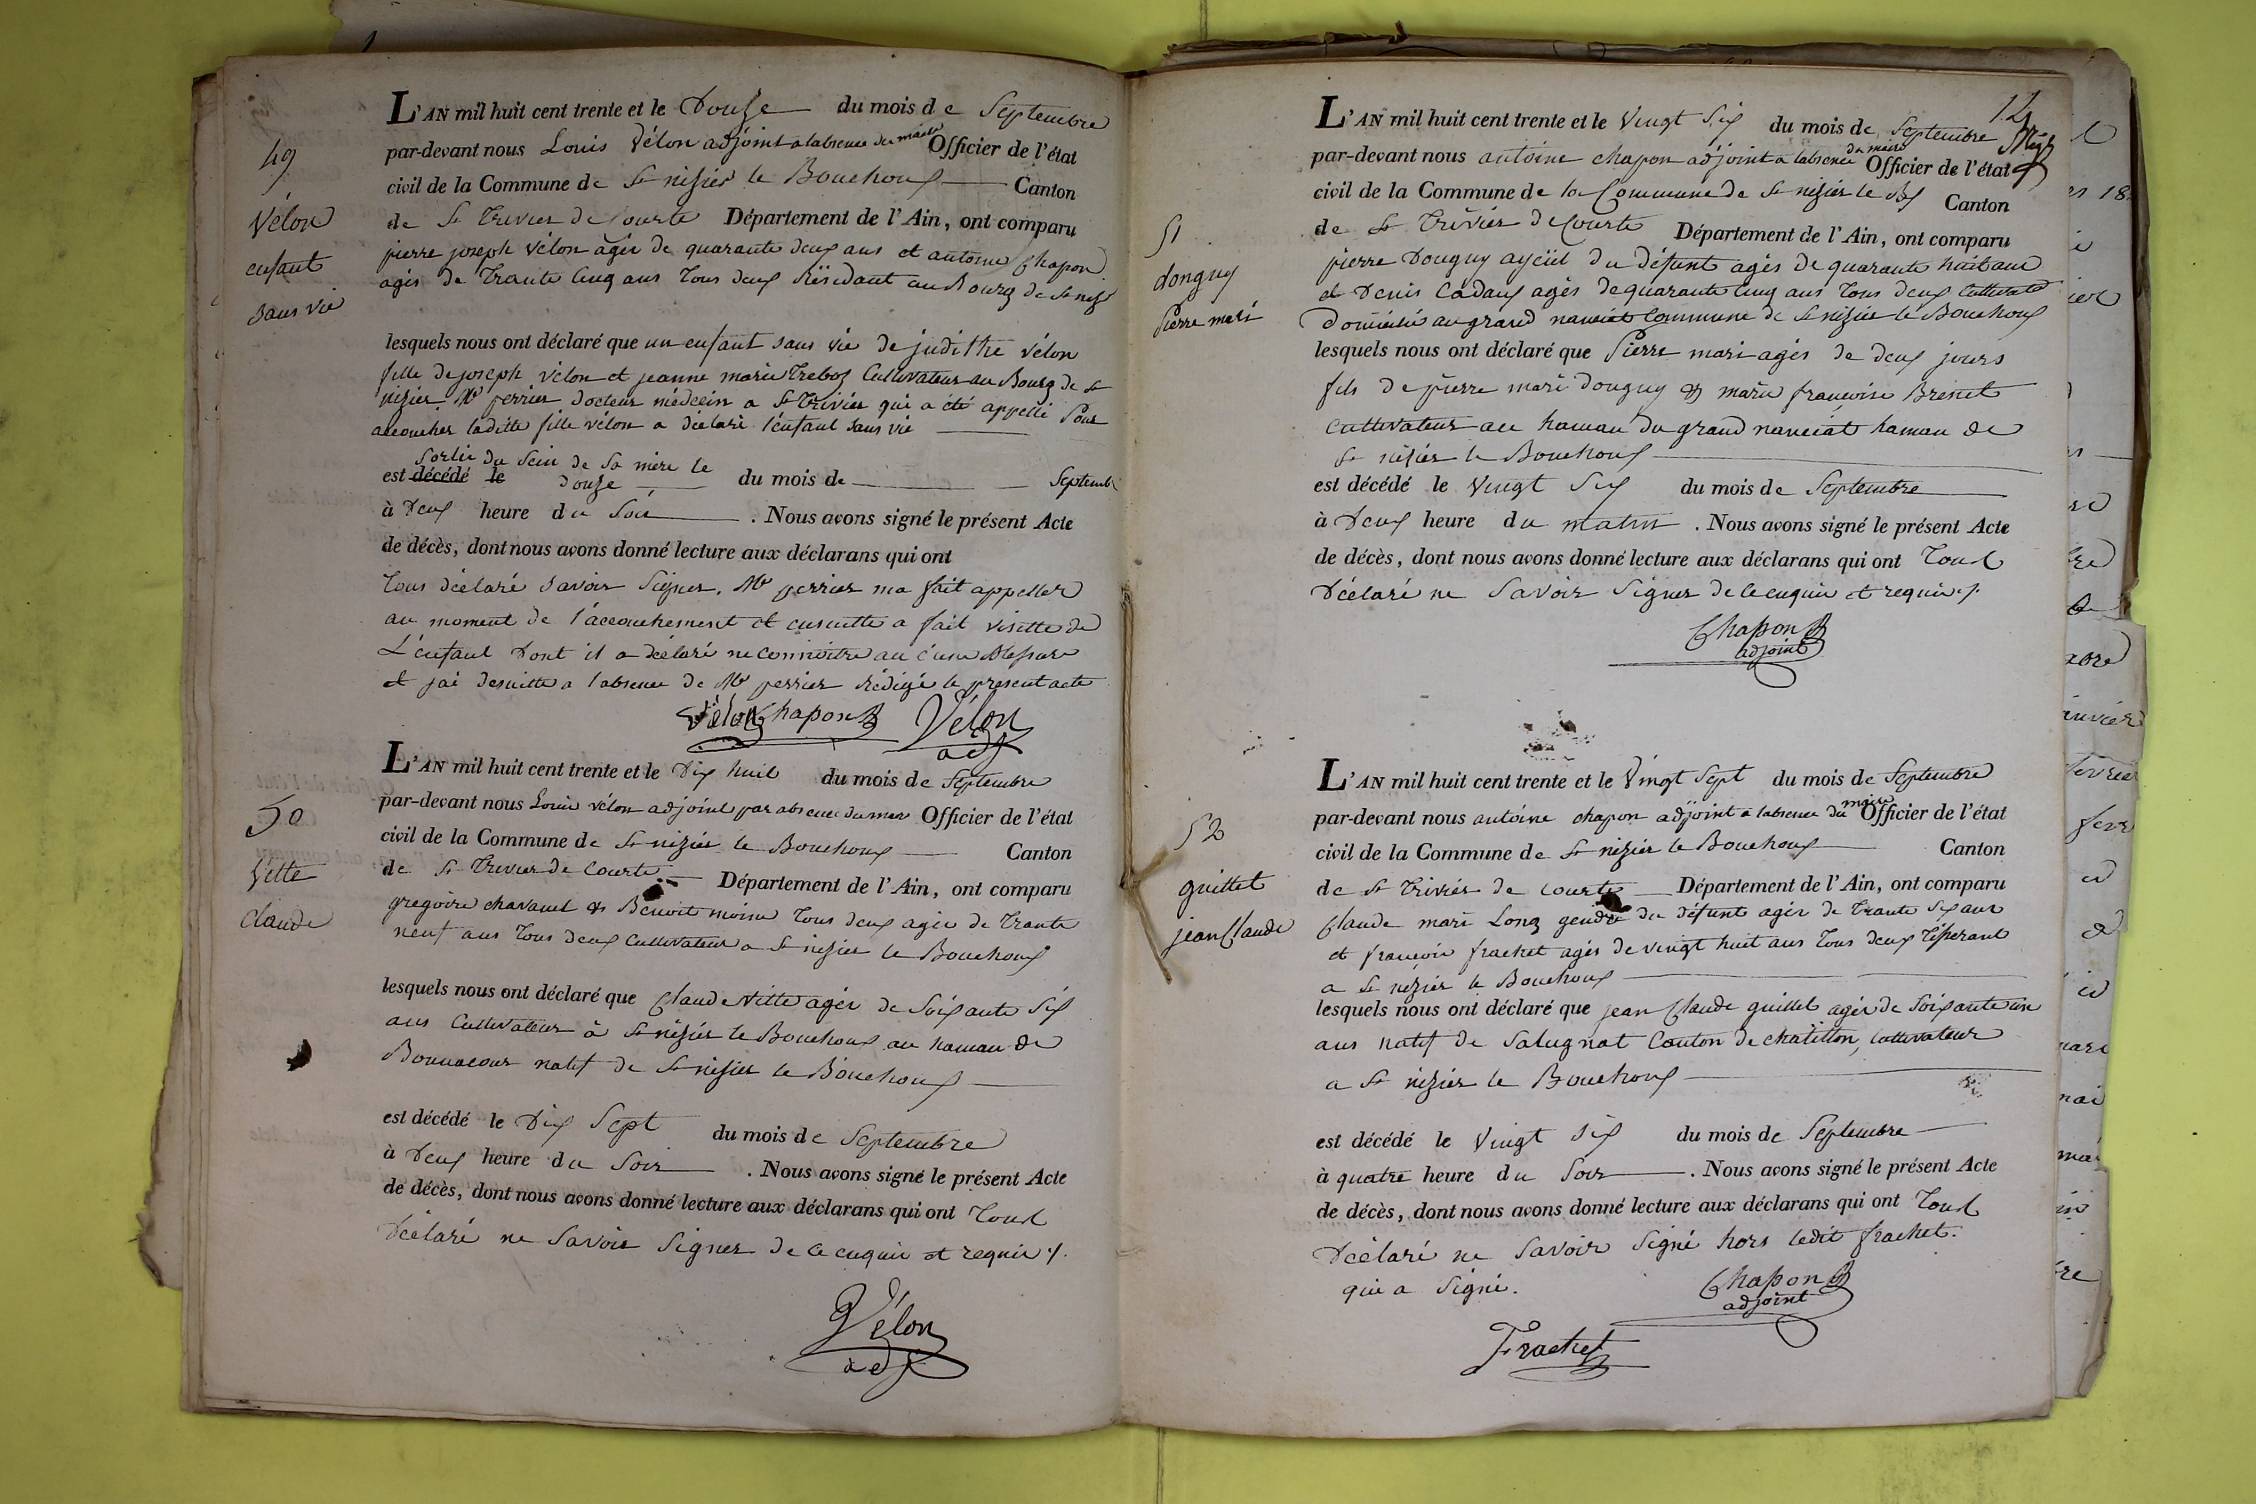 49
Vélon
enfant
sans vie
L'AN mil huit cent trente et le Douze du mois de Septembre
par-devant nous Louis Vélon adjoint a labsence du maire Officier de l'état
civil de la Commune de St nizier le Bouchoux Canton
de St Trivier de Courte Département de l'Ain, ont comparu
pierre joseph vélon agér de quarante deux ans et antoine Chapon
agés de Trante Cinq ans Tous deux Résidant au Bourg de St niz
lesquels nous ont déclaré que un enfant sans vie de judithe vélon
fille de joseph vélon et jeanne marie Treboz Cultivateur au Bourg de St
nizier Mr perrier docteur médecin a St Trivier qui a été appellé Pour
accoucher laditte fille vélon a déclaré l'enfant sans vie
Sortie du Sein de Sa mère le
est décédé le douze du mois de Septemb
à Deux heure du Soir . Nous avons signé le présent Acte
de décès, dont nous avons donné lecture aux déclarans qui ont
Tous déclaré savoir Signer. Mr perrier ma fait appeller
au moment de l'accouchement et ensuitte a fait visitte de
L'enfant Dont il a déclaré ne connoitre au c'une Blessure
et jai desuitte a l'absence de Mr perrier rédigé le present acte
Vélon Chapon Vélon
adj
50
Vitte
Claude
L'AN mil huit cent trente et le Dix huit du mois de Septembre
par-devant nous Louis vélon adjoint par absence du mere Officier de l'état
civil de la Commune de St nizier le Bouchoux Canton
de St Trivier de Courte Département de l'Ain, ont comparu
gregoire chavanel & Benoit moine Tous deux agér de Trante
neuf ans Tous deux Cultivateur a St nizier le Bouchoux
lesquels nous ont déclaré que Claude Vitte agér de Soixante Six
ans Cultivateur à St nizier le Bouchoux au hamau de
Bonnacour natif de St nizier le Bouchoux
est décédé le Dix Sept du mois de Septembre
à Deux heure du Soir . Nous avons signé le présent Acte
de décès, dont nous avons donné lecture aux déclarans qui ont Tous
Déclaré ne Savoir Signer de ce enquir et requir /.
Vélon
adj
14
51
donguy
Pierre mari
L'AN mil huit cent trente et le Vingt Six du mois de Septembre
par-devant nous antoine chapon adjoint a labsence du maire Officier de l'état
civil de la Commune de la Commune de St nizier le Bx Canton
de St Trivier de Courte Département de l'Ain, ont comparu
pierre Donguy ayeul du défunt agés de quarante huit ans
et Denis Cadoux agés de quarante Cinq ans Tous deux Cultivate
Domicilié au grand nanciat Commune de St nizier le Bouchoux
lesquels nous ont déclaré que Pierre mari agés de deux jours
fils de pierre mari donguy & marie françoise Brenet
Cultivateur au hamau du grand nanciat hamau de
St nizier le Bouchoux
est décédé le Vingt Six du mois de Septembre
à Deux heure du matin . Nous avons signé le présent Acte
de décès, dont nous avons donné lecture aux déclarans qui ont Tous
Déclaré ne Savoir Signer de ce enquir et requir /.
Chapon
adjoint
52
guillet
jean Claude
L'AN mil huit cent trente et le Vingt Sept du mois de Septembre
par-devant nous antoine chapon adjoint a labsence du maire Officier de l'état
civil de la Commune de St nizier le Bouchoux Canton
de St Trivier de Courte Département de l'Ain, ont comparu
Claude mari Long gendre du défunt agér de Trante Six ans
et françois frachet agés de vingt huit ans Tous deux
a St nizier le Bouchoux
lesquels nous ont déclaré que jean Claude guillet agér de Soixante une
ans natif de Salugnat Canton de chatillon, cultivateur
a St nizier le Bouchoux
est décédé le Vingt Six du mois de Septembre
à quatre heure du Soir . Nous avons signé le présent Acte
de décès, dont nous avons donné lecture aux déclarans qui ont Tous
Déclaré ne Savoir Signé hors ledit frachet.
qui a Signé.
Chapon
adjoint
Frachet